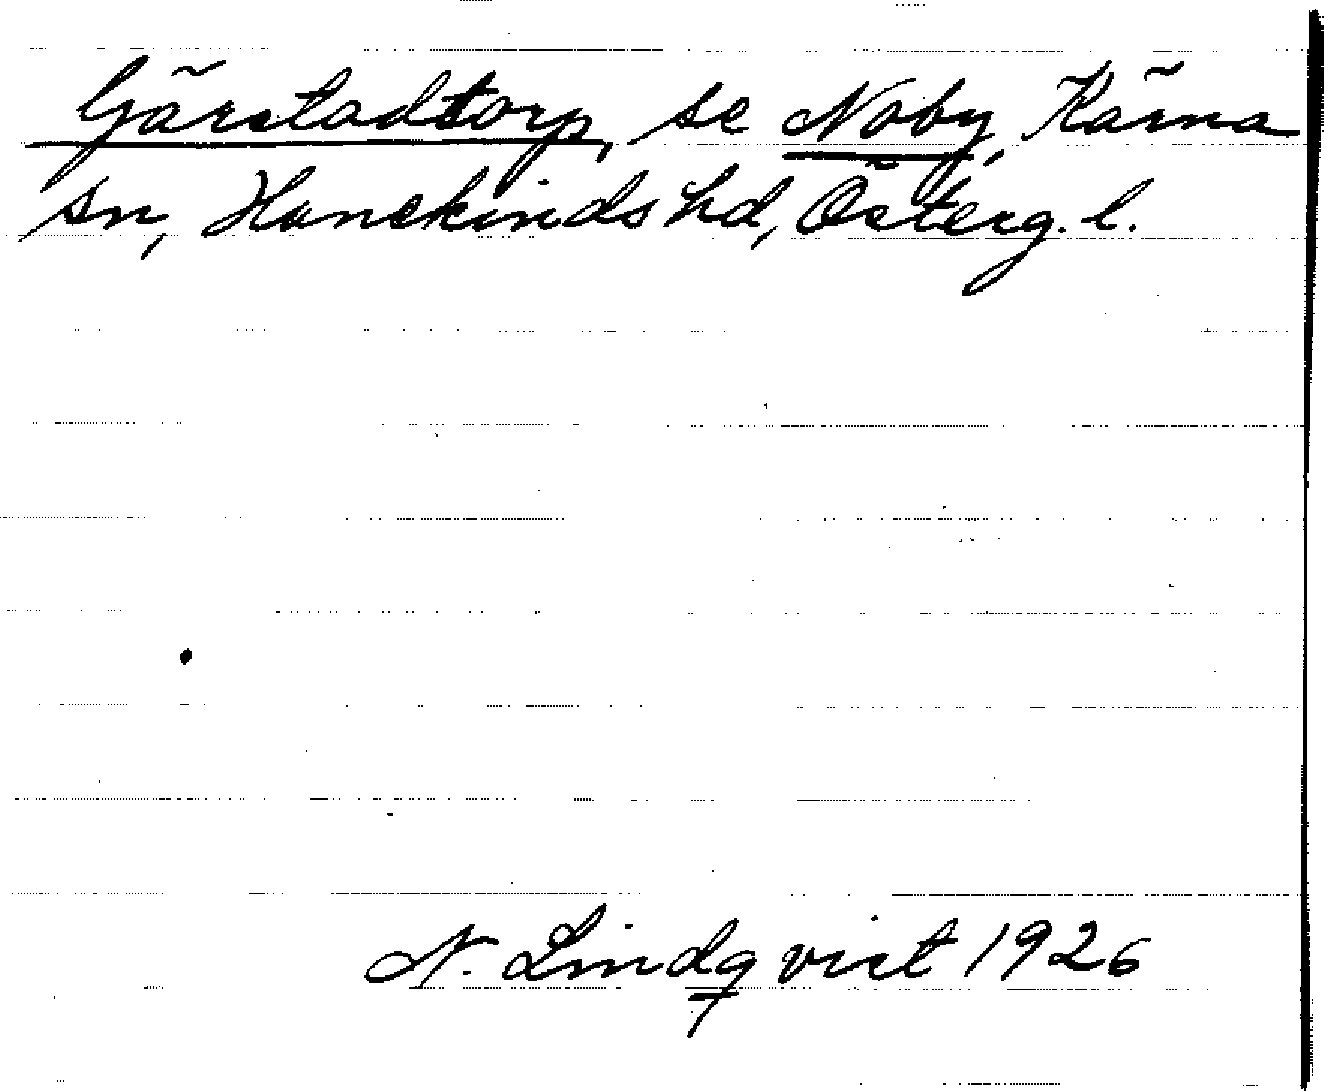 Gärstadtorp, se Noby, Kärna
sn, Hanekinds hd, Österg. l.
N. Lindqvist 1926